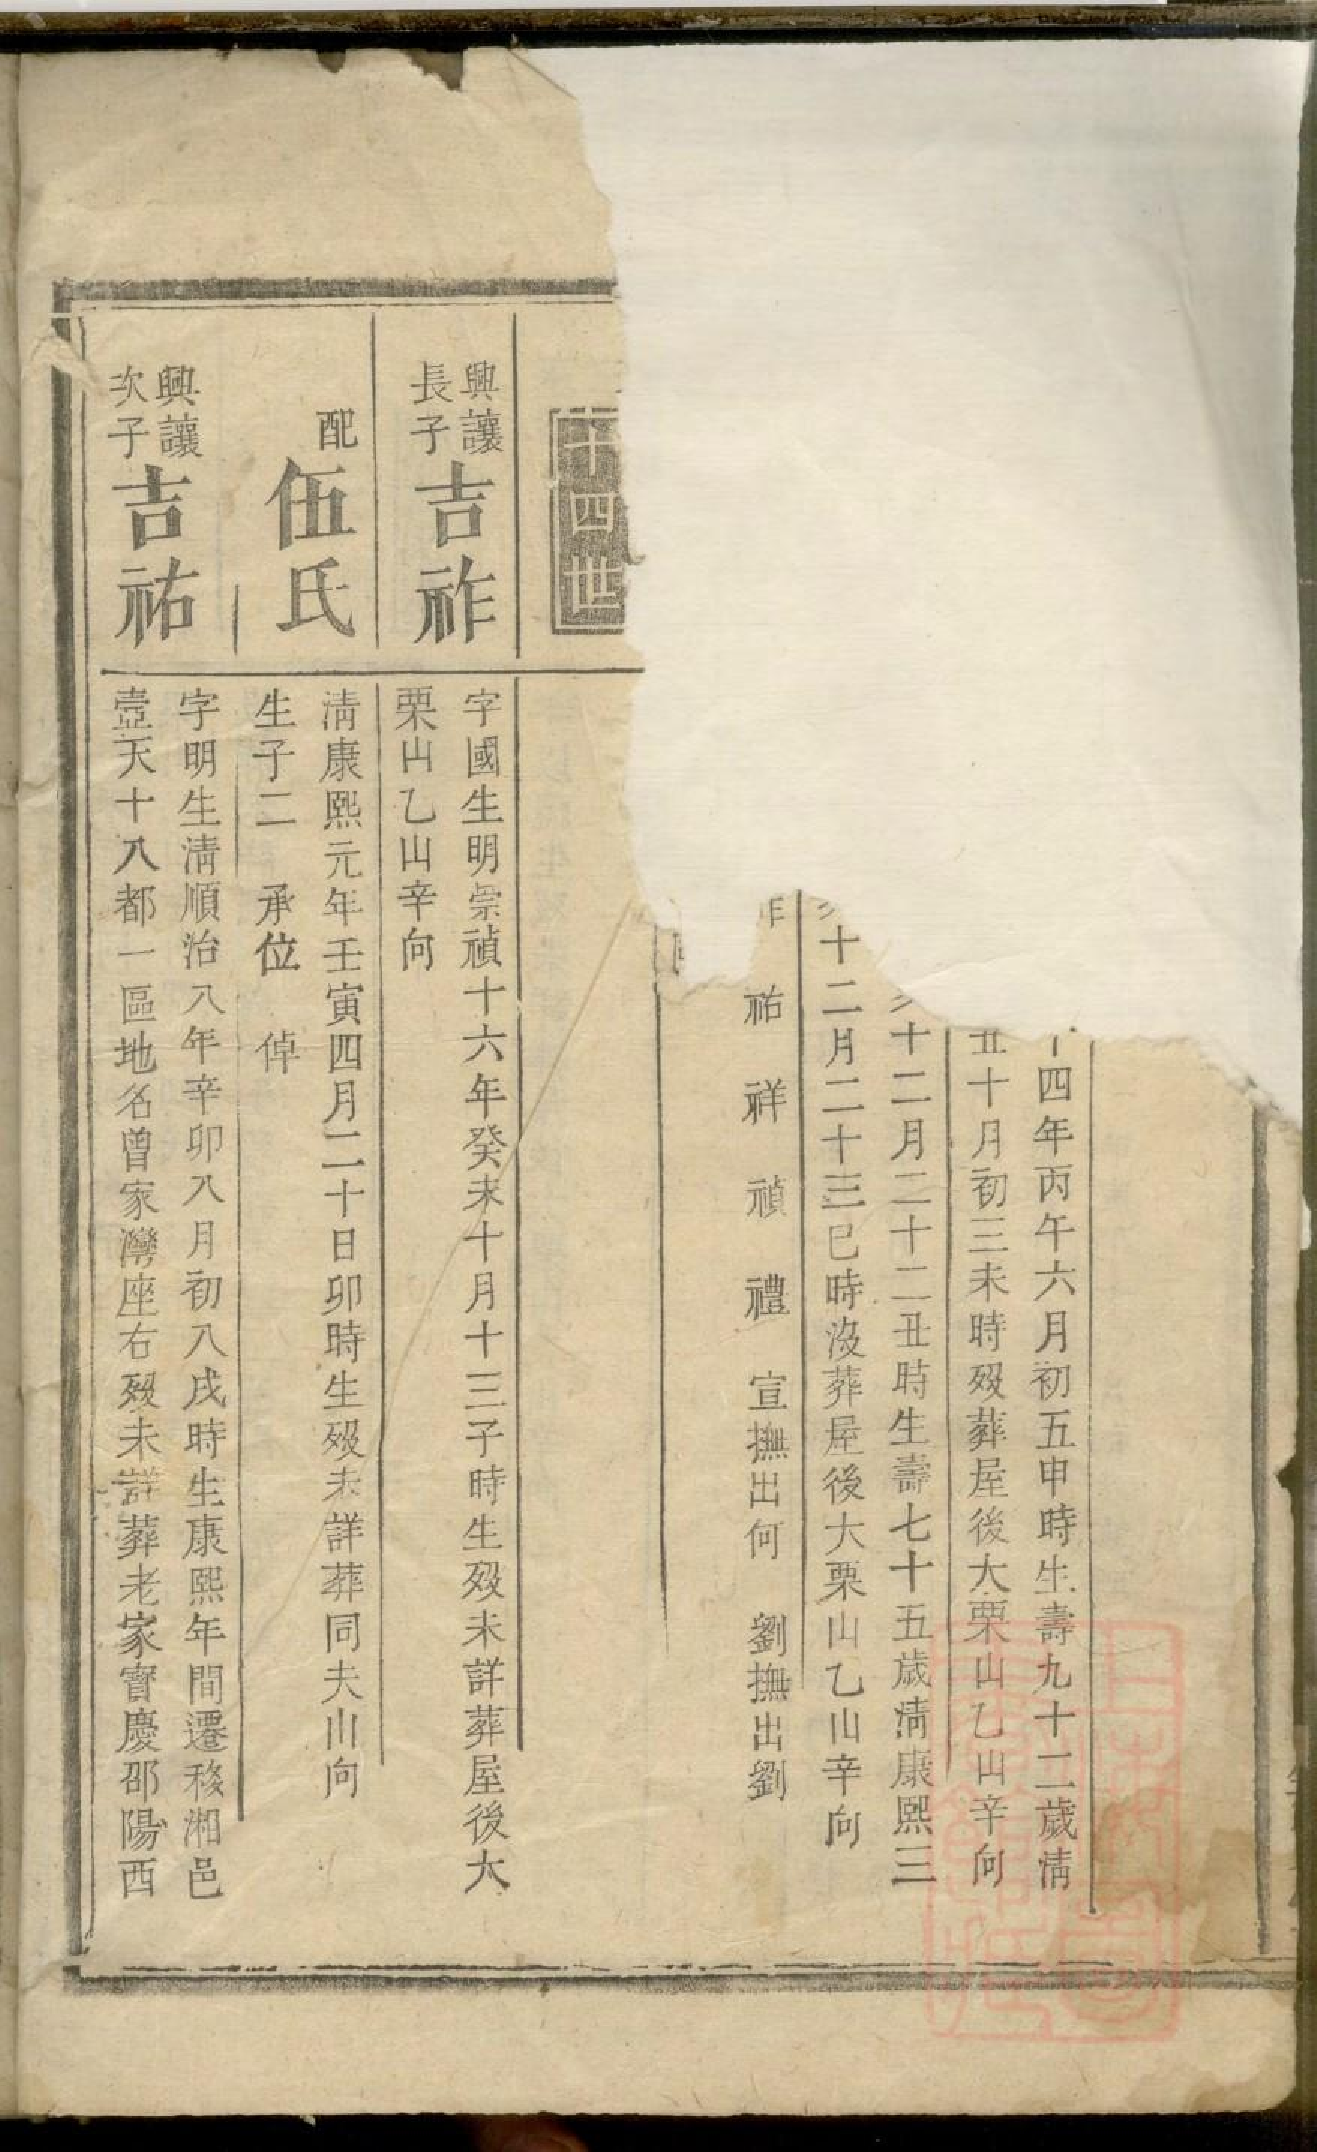 四年丙午六月初五申時生壽九十二歲淸
丑十月初三未時殁葬屋後大栗山乙山辛向
十二月二十二丑時生壽七十五歲淸康熙三
十二月二十三巳時沒葬屋後大栗山乙山辛向
祚 祐 祥 禎 禮 宣撫出何 劉撫出劉
十四世
興讓
長子
吉祚
字國生明崇禎十六年癸未十月十三子時生殁未詳葬屋後大
栗山乙山辛向
配
伍氏
淸康熙元年壬寅四月二十日卯時生殁未詳葬同夫山向
生子二 承位 倬
興讓
次子
吉祐
字明生淸順治八年辛卯八月初八戌時生康熙年間遷移湘邑
壼天十八都一區地名曾家灣座右殁未詳葬老家寳慶邵陽西